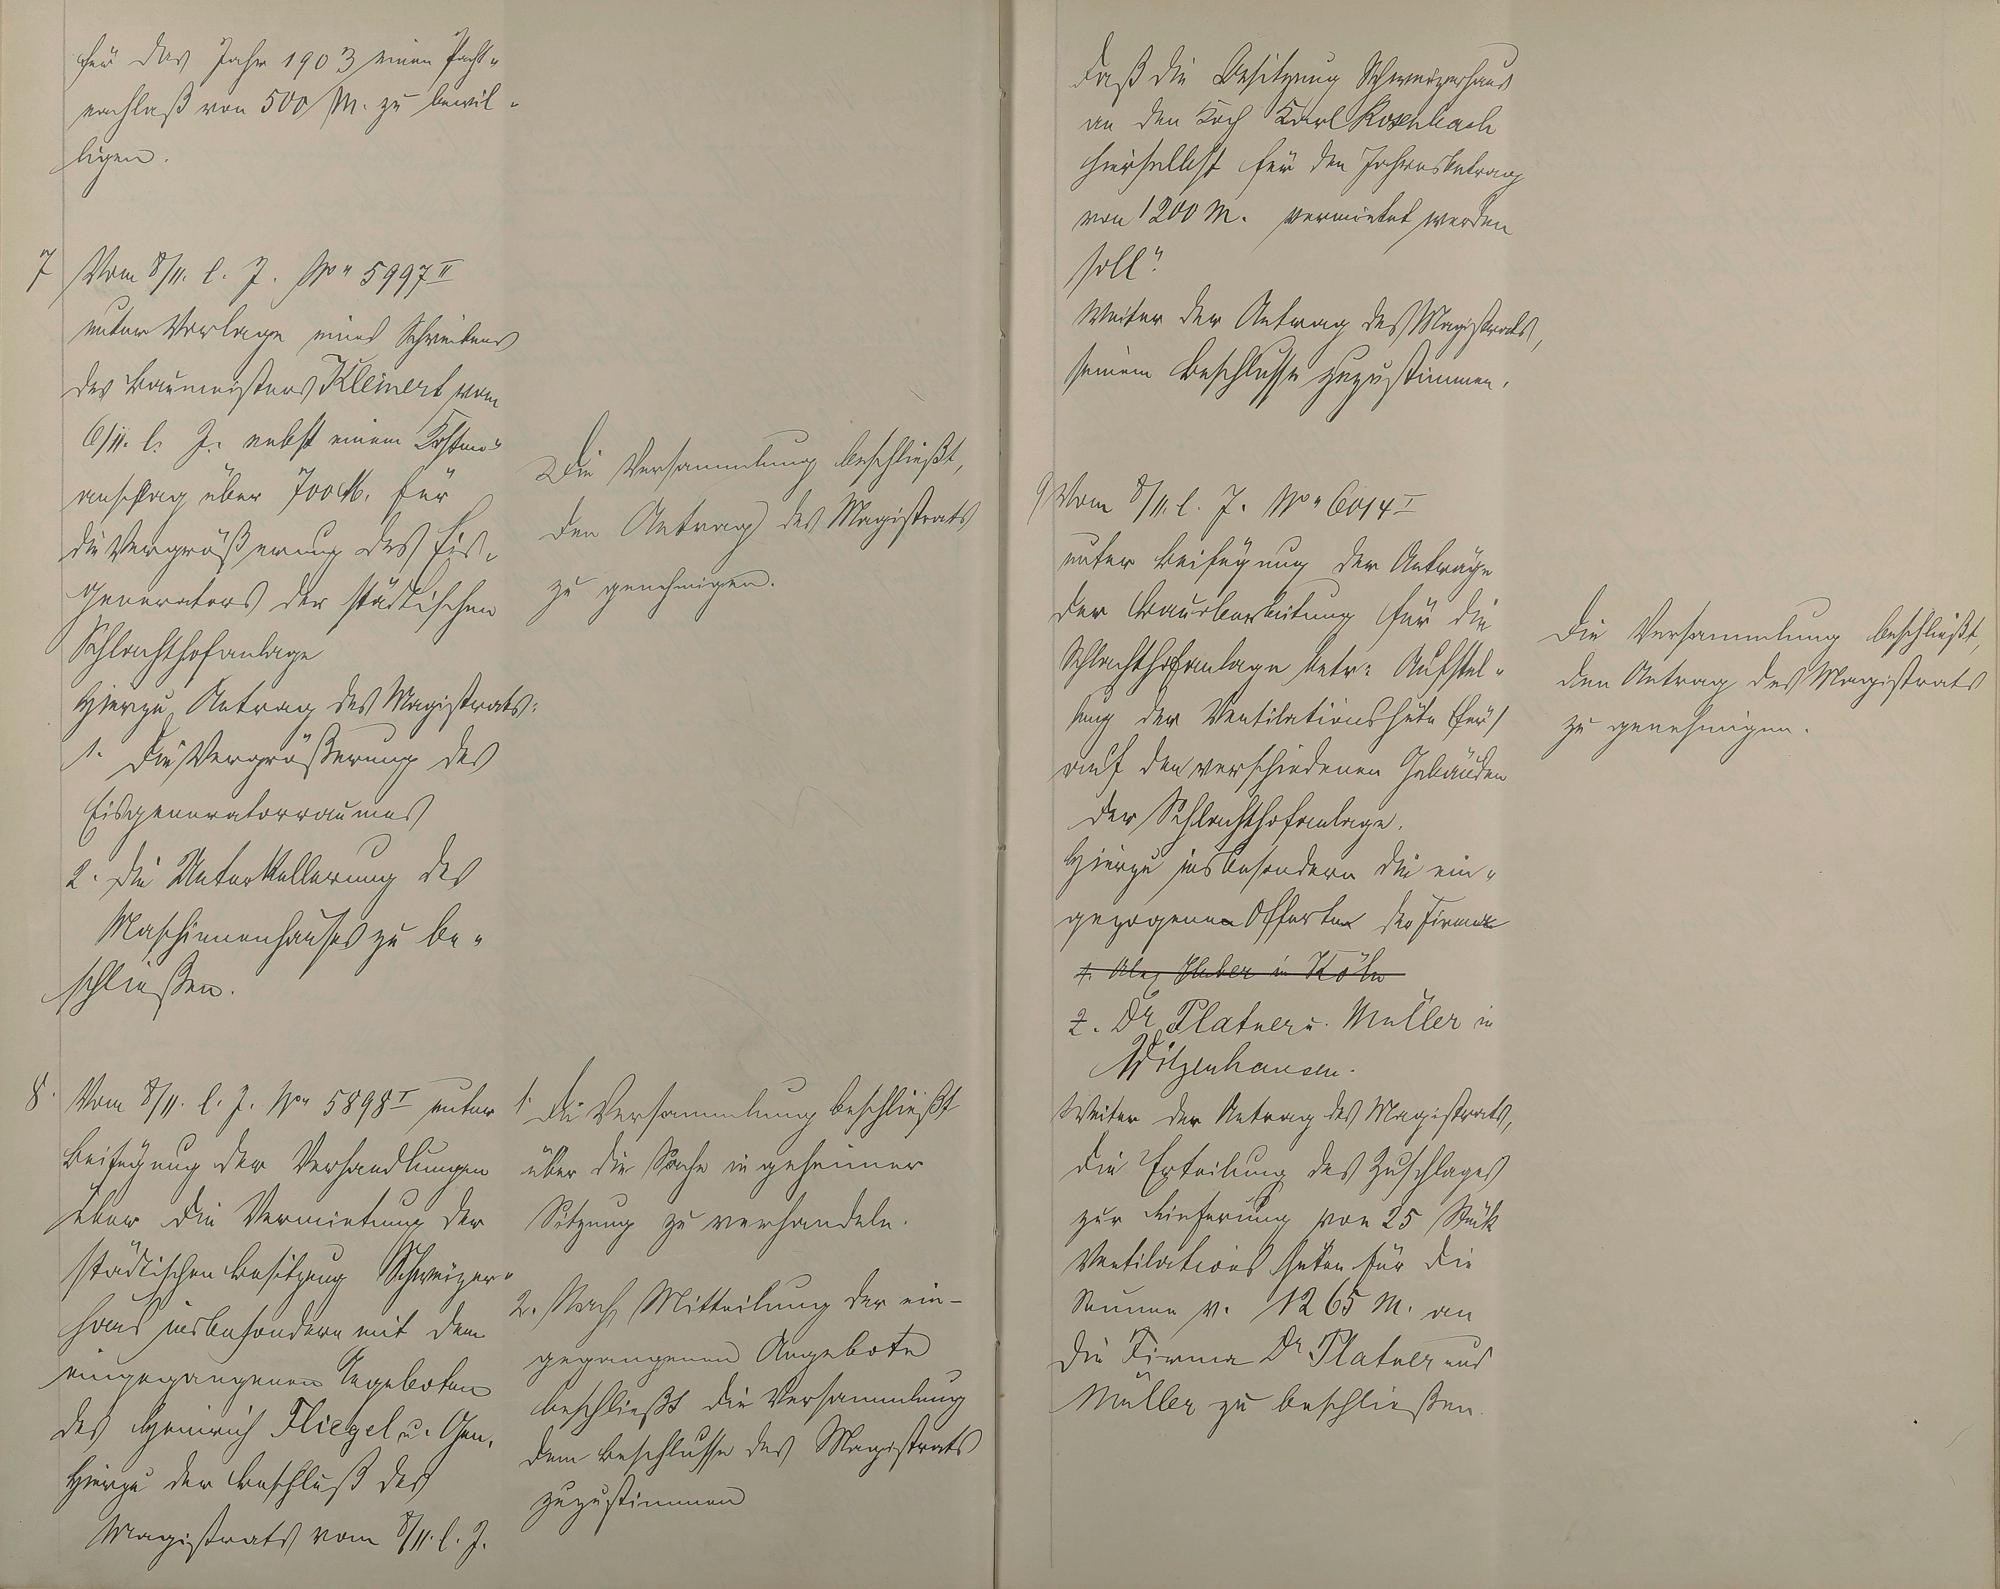 für das Jahr 1903 einen Pacht-
nachlaß von 500 M. zu bewil-
ligen.
7 Vom 8/11. l. J. No 5997 II
unter Vorlage eines Schreibens
des Baumeisters Kleinert vom
6/11. l. J. nebst einem Kosten-
anschlag über 700 M. für
die Vergrößerung des Eis-
generators der städtischen
Schlachthofanlage
Hierzu Antrag des Magistrats:
1. die Vergrößerung des
Eisgeneratorraumes
2. die Unterkellerung des
Maschinenhauses zu be-
schließen.
Die Versammlung beschließt,
den Antrag des Magistrats
zu genehmigen.
8. Vom 8/11. l. J. No 5898 I unter
Beifügung der Verhandlungen
über die Vermietung der
städtischen Besitzung Schweizer-
haus insbesondere mit dem
eingegangenen Angeboten
des Heinrich Fliegel u. Gen.
Hierzu der Beschluß des
Magistrats vom 8/11. l. J.
1. Die Versammlung beschließt
über die Sache in geheimer
Sitzung zu verhandeln.
2. Nach Mitteilung der ein-
gegangenen Angebote
beschließt die Versammlung
dem Beschlusse des Magistrats
zuzustimmen
daß die Besitzung Schweizerhaus
an den Koch Karl Roschbach
hierselbst für den Jahresbetrag
von 1200 M. vermietet werden
soll."
Weiter der Antrag des Magistrats,
seinem Beschlusse zuzustimmen.
9 Vom 8/11. l. J. No 6014 I
unter Beifügung der Anträge
der Bauabteilung für die
Schlachthofanlage betr: Aufstel-
lung der Ventilationshüte für
auf den verschiedenen Gebäuden
der Schlachthofanlage.
Hierzu insbesondere die ein-
gezogenen Offerten der Firma
1. Alex Huber in Köln
2. Dr Platner u. Müller in
Witzenhausen.
Weiter der Antrag des Magistrats,
die Erteilung des Zuschlages
zur Lieferung von 25 Stück
Ventilationshüten für die
Summe v. 1265 M. an
die Firma Dr Platner und
Müller zu beschließen.
Die Versammlung beschließt,
den Antrag des Magistrats
zu genehmigen.